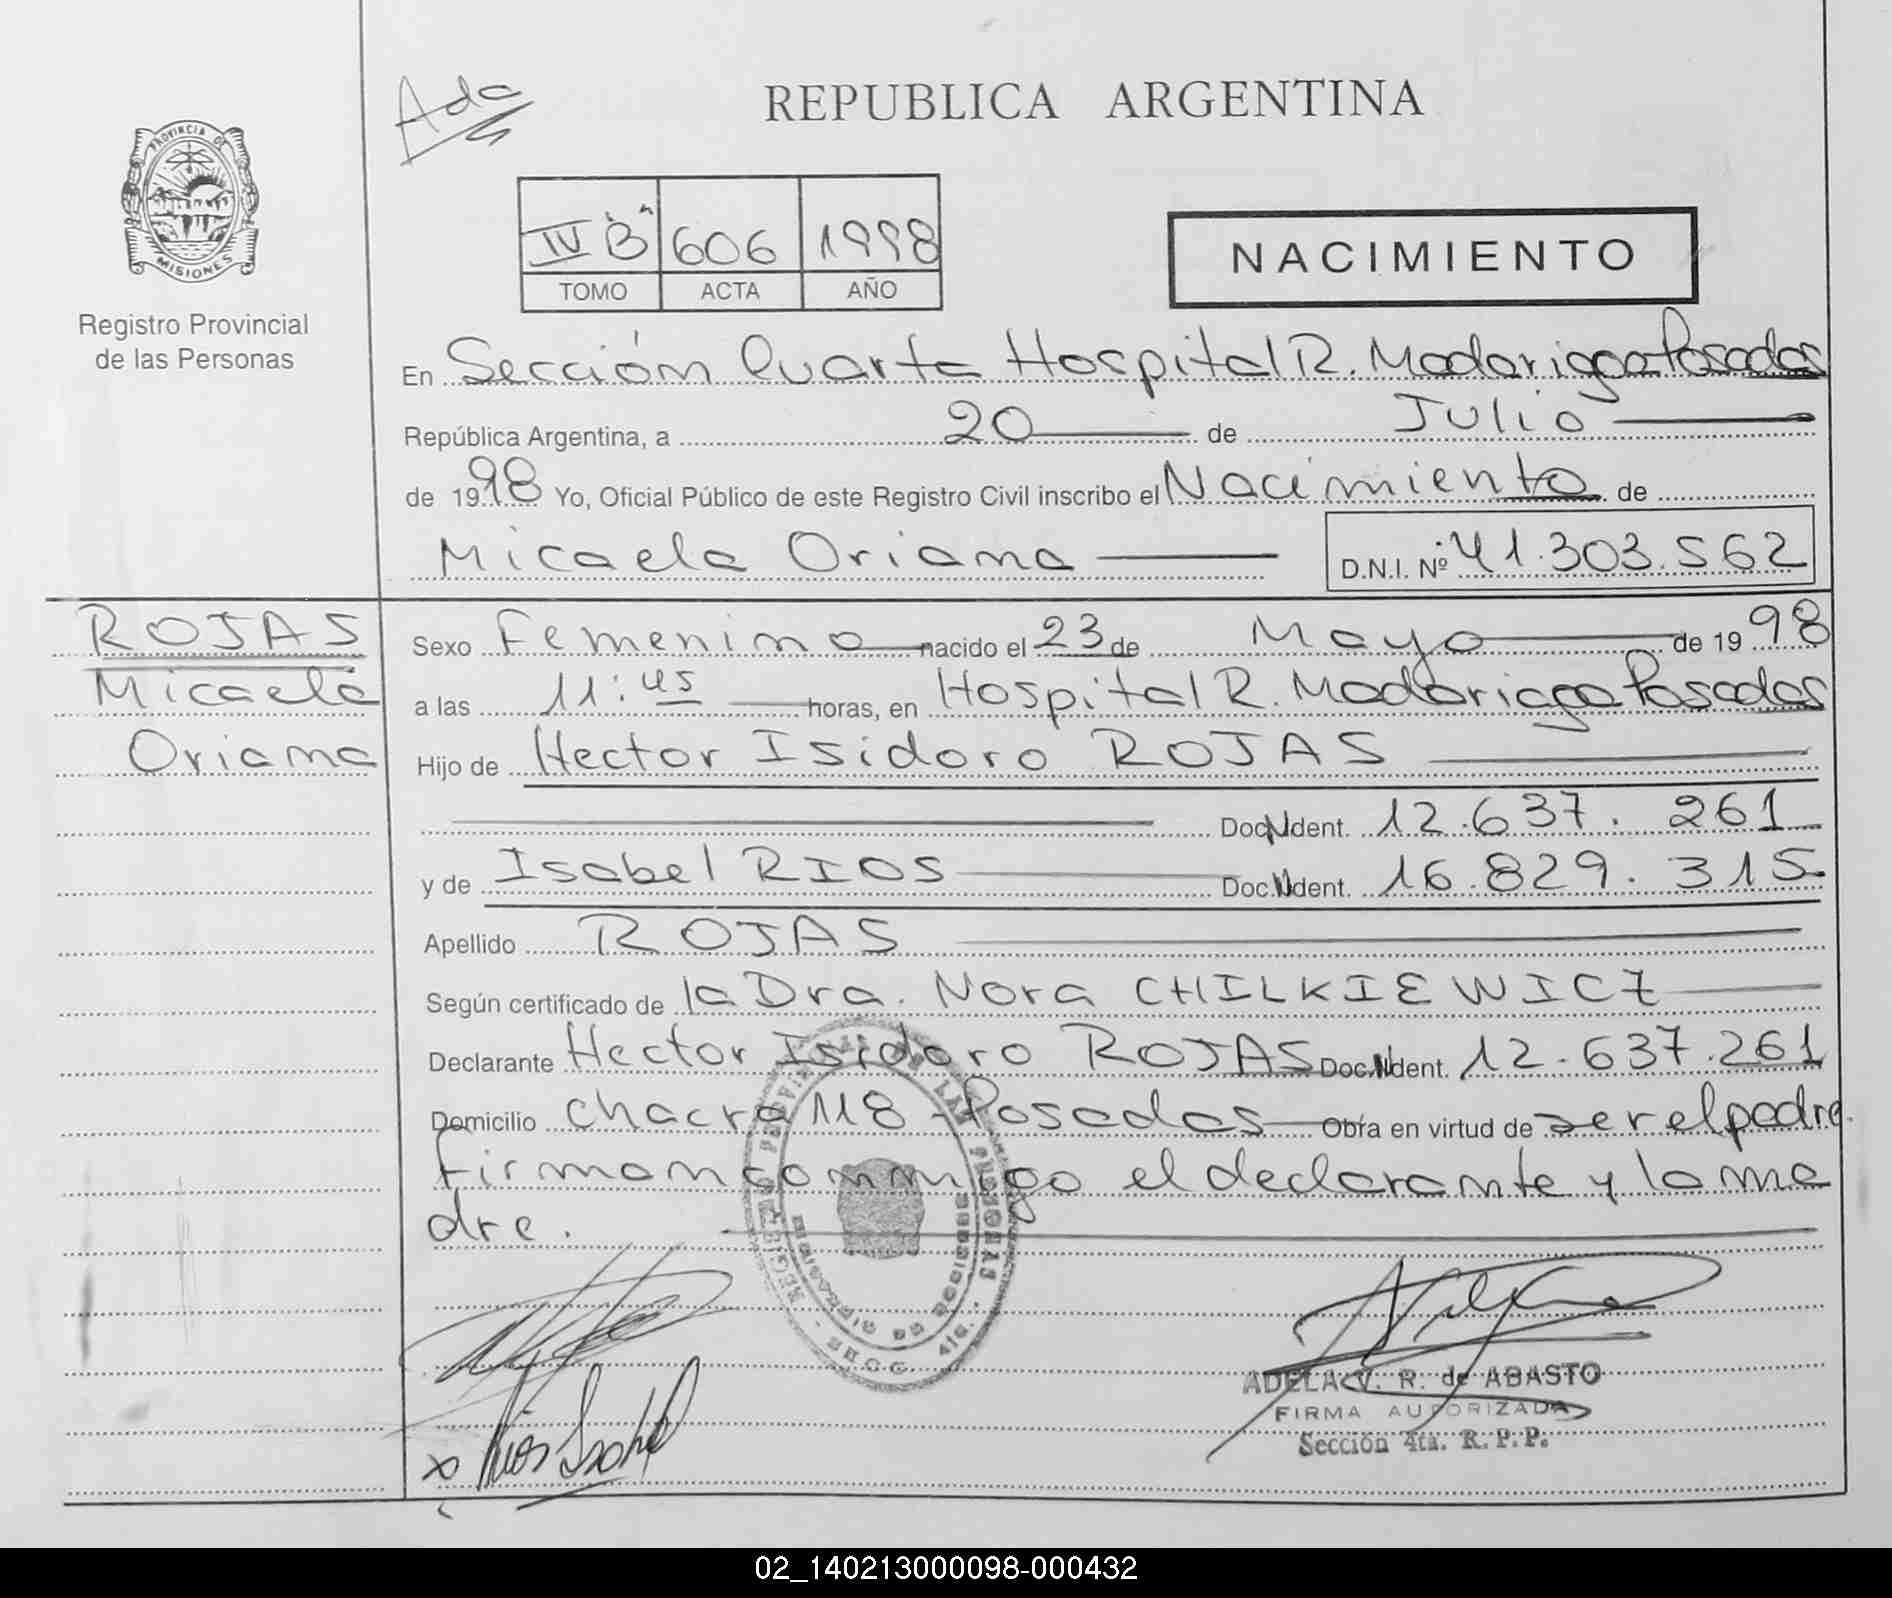 Ada
REPUBLICA ARGENTINA
PROVINCIA DE
MISIONES
Registro Provincial
de las Personas
IV "B" 606 1998
TOMO ACTA AÑO
NACIMIENTO
En Sección Cuarta Hospital R. Madariaga Posadas
República Argentina, a 20 de Julio
de 1998 Yo, Oficial Público de este Registro Civil inscribo el Nacimiento de
Micaela Oriana D.N.I. Nº 41.303.562
ROJAS
Micaela
Oriana
Sexo Femenino nacido el 23 de Mayo de 1998
a las 11:45 horas, en Hospital R. Madariaga Posadas
Hijo de Hector Isidoro ROJAS
Doc. Ident. 12.637.261
y de Isabel RIOS Doc. Ident. 16.829.315
Apellido ROJAS
Según certificado de la Dra. Nora CHILKIEWICZ
Declarante Hector Isidoro ROJAS Doc. Ident. 12.637.261
Domicilio chacra 118 - Posadas Obra en virtud de ser el padre.
firman conmigo el declarante y la ma
dre.
x Rios Isabel
ADELA V. R. de ABASTO
FIRMA AUTORIZADA
Sección 4ta. R.P.P.
02_140213000098-000432